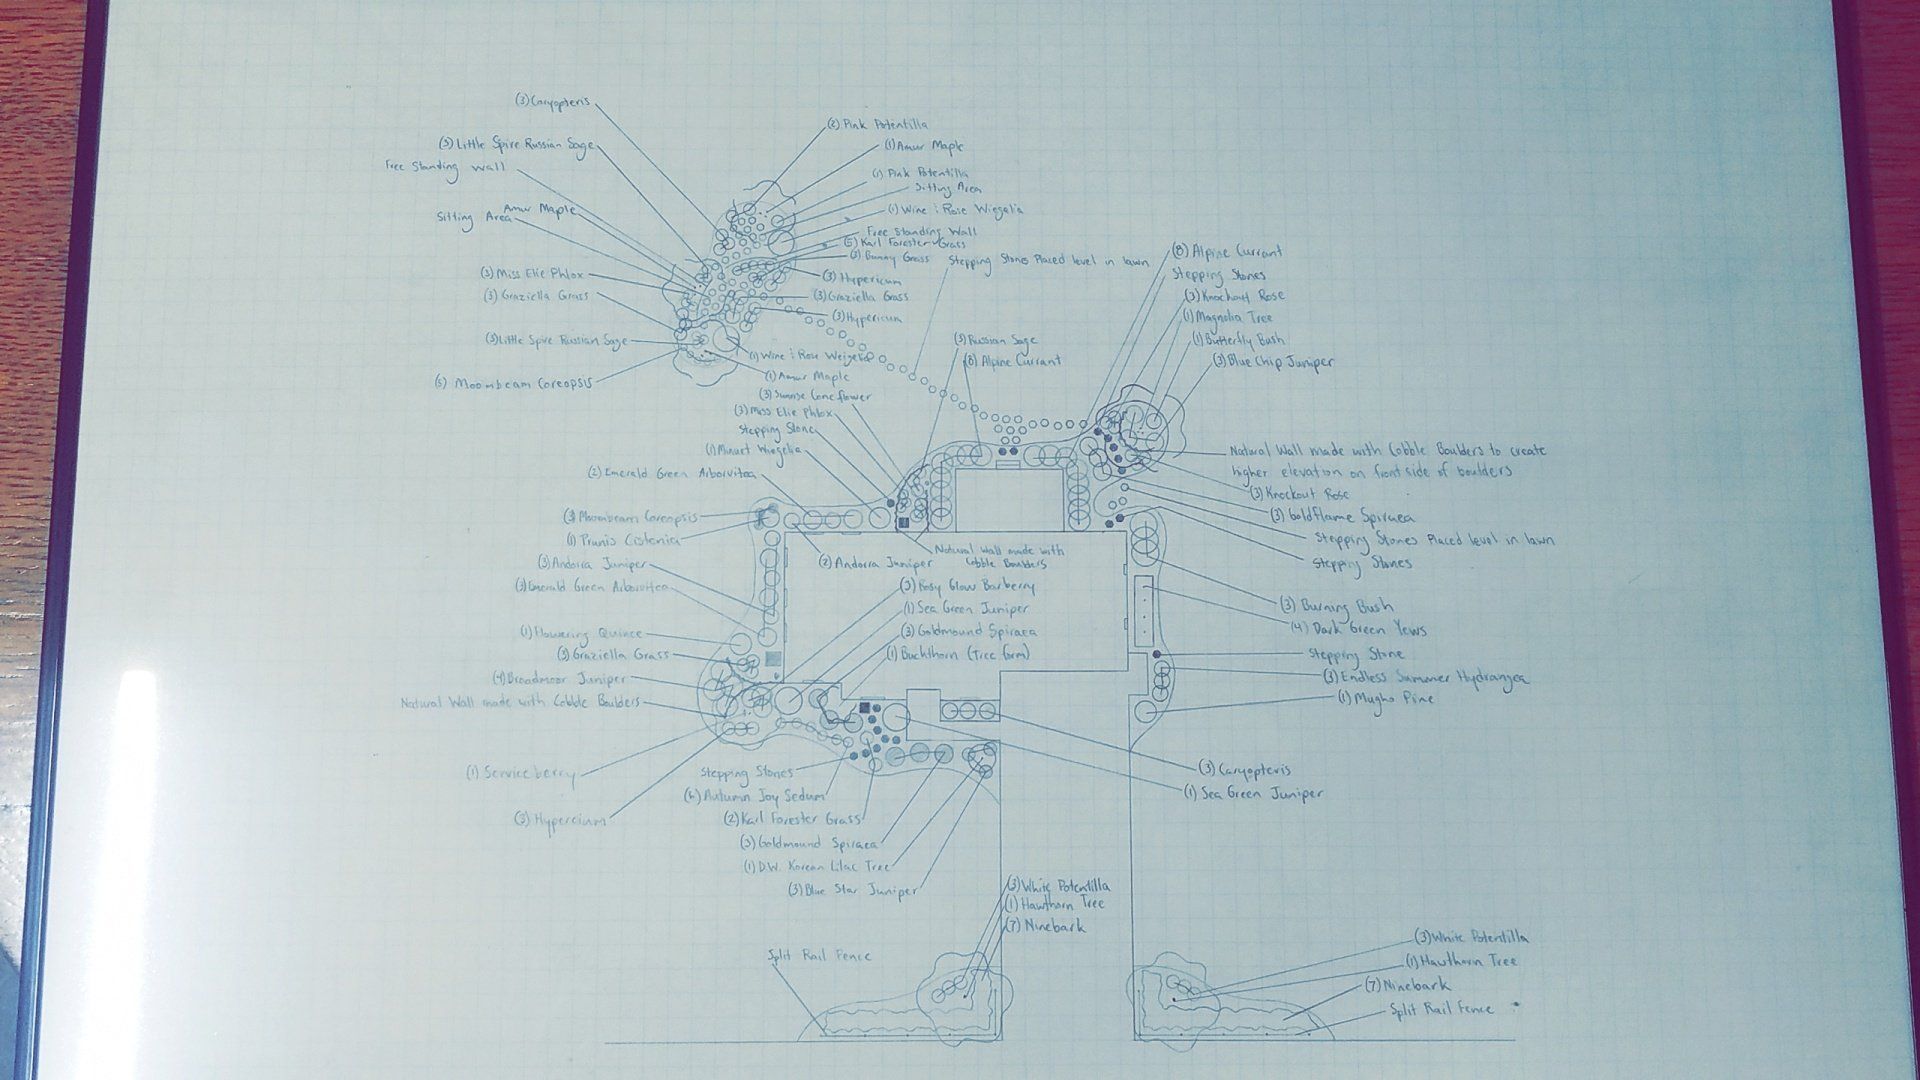 (3) Caryopteris
(2) Pink Potentilla
(3) Little Spire Russian Sage
(1) Amur Maple
Free Standing wall
(1) Pink Potentilla
Sitting Area
Amur Maple
Sitting Area
(1) Wine & Rose Wiegelia
Free Standing Wall
(5) Karl Forester Grass
(3) Bunny Grass
Stepping Stones Placed level in lawn
(8) Alpine Currant
Stepping Stones
(3) Miss Elie Phlox
(3) Hypericum
(3) Graziella Grass
(3) Graziella Grass
(3) Knockout Rose
(3) Hypericum
(1) Magnolia Tree
(3) Little Spire Russian Sage
(3) Russian Sage
(1) Butterfly Bush
(1) Wine & Rose Weigelia
(8) Alpine Currant
(3) Blue Chip Juniper
(5) Moombeam Coreopsis
(1) Amur Maple
(3) Sunrise Coneflower
(3) Miss Elie Phlox
Stepping Stone
(1) Minuet Wiegelia
Natural Wall made with Cobble Boulders to create
higher elevation on front side of boulders
(2) Emerald Green Arborvitea
(3) Knockout Rose
(3) Moombeam Coreopsis
(3) Goldflame Spiraea
(1) Prunis Cistenia
Stepping Stones Placed level in lawn
Natural Wall made with
Cobble Boulders
(2) Andorra Juniper
Stepping Stones
(3) Andorra Juniper
(3) Emerald Green Arborvitea
(3) Rosy Glow Barberry
(1) Sea Green Juniper
(3) Burning Bush
(1) Flowering Quince
(3) Goldmound Spiraea
(4) Dark Green Yews
(3) Graziella Grass
(1) Buckthorn (Tree form)
Stepping Stone
(4) Broadmoor Juniper
(3) Endless Summer Hydrangea
Natural Wall made with Cobble Boulders
(1) Mugho Pine
(1) Serviceberry
Stepping Stones
(3) Caryopteris
(6) Autumn Joy Sedum
(1) Sea Green Juniper
(3) Hypericium
(2) Karl Forester Grass
(3) Goldmound Spiraea
(1) D.W. Korean Lilac Tree
(3) Blue Star Juniper
(3) White Potentilla
(1) Hawthorn Tree
(7) Ninebark
Split Rail Fence
(3) White Potentilla
(1) Hawthorn Tree
(7) Ninebark
Split Rail Fence